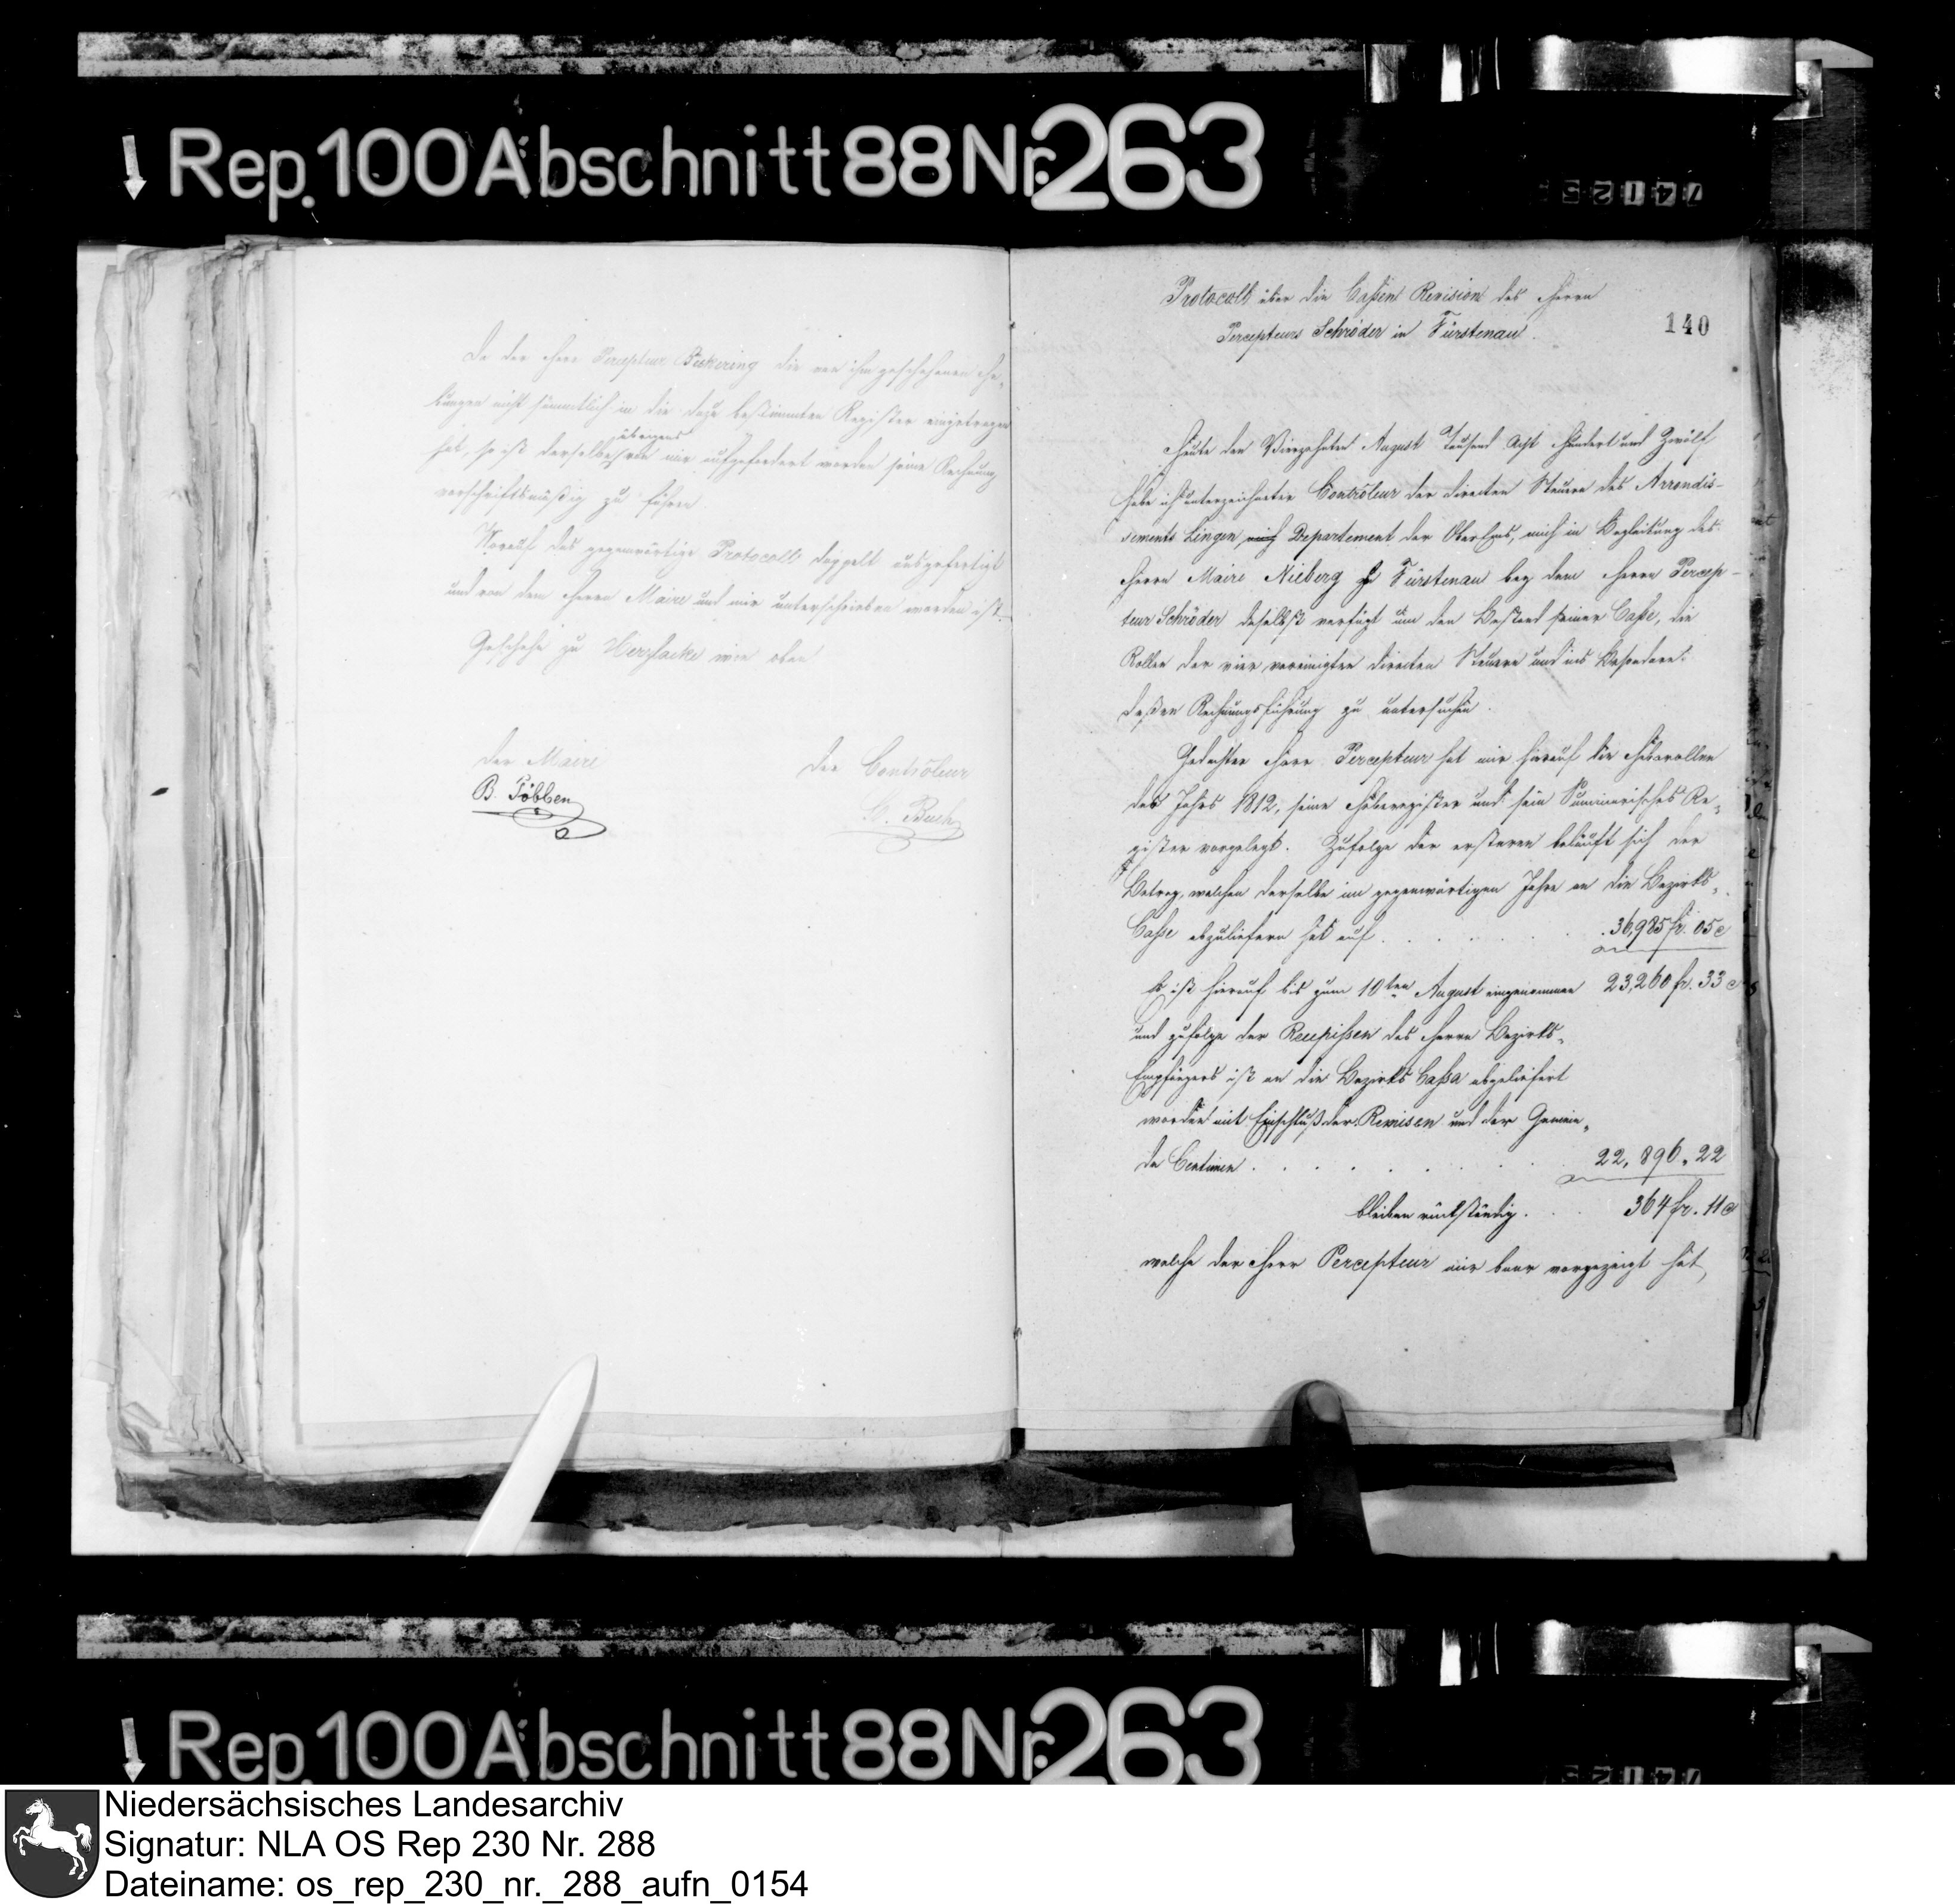 Rep. 100 Abschnitt 88 Nr. 263
Da der Herr Percepteur Bükering die von ihm geschehenen He¸
bungen nicht sämmtlich in die dazu bestimmten Register eingetragen
hat, so ist derselbe übrigens von mir aufgefordert worden seine Rechnung
vorschriftsmäßig zu führen.
Worauf das gegenwärtige Protocoll doppelt ausgefertigt
und von dem Herrn Maire und mir unterschrieben worden ist.
Geschehe zu Herzlacke wie oben
Der Maire
B. Többen
Der Contrôleur
Buch
Protocoll über die Caßen Revision des Herrn
Percepteurs Schröder in Fürstenau.
140
Heute den Vierzehnten August Tausend Acht Hundert und Zwölf
habe ich unterzeichneter Contrôleur der directen Steuern des Arrondis-
sements Lingen Departement der OberEms, mich in Begleitung des
Herrn Maire Nieberg zu Fürstenau bey dem Herrn Percep-
teur Schröder daselbst verfügt um den Bestand seiner Caße, die
Rollen der vier vereinigten directen Steuern und ins Besondere
deßen Rechnungsführung zu untersuchen.
Gedachter Herr Percepteur hat mir hierauf die Heberollen
des Jahrs 1812, seine Heberegister und sein Summarisches Re¸
gister vorgelegt. Zufolge der ersteren beläuft sich der
Betrag, welchen derselbe im gegenwärtigen Jahre an die Bezirks¸
Casse abzuliefern hat auf . . . . . . 36,985 fr. 05 c
Es ist hierauf bis zum 10ten August eingenommen 23,260 fr. 33 c
und zufolge der Recepissen des Herrn Bezirks¸
Empfängers ist an die Bezirks Cassa abgeliefert
worden mit Einschluß der Remisen und der Gemein¸
de Centimen . . . . . . . . 22,896 „ 22
bleiben rückständig . . . 364 fr. 11 c
welche der Herr Percepteur mir baar vorgezeigt hat,
Rep. 100 Abschnitt 88 Nr. 263
Niedersächsisches Landesarchiv
Signatur: NLA OS Rep 230 Nr. 288
Dateiname: os_rep_230_nr._288_aufn_0154